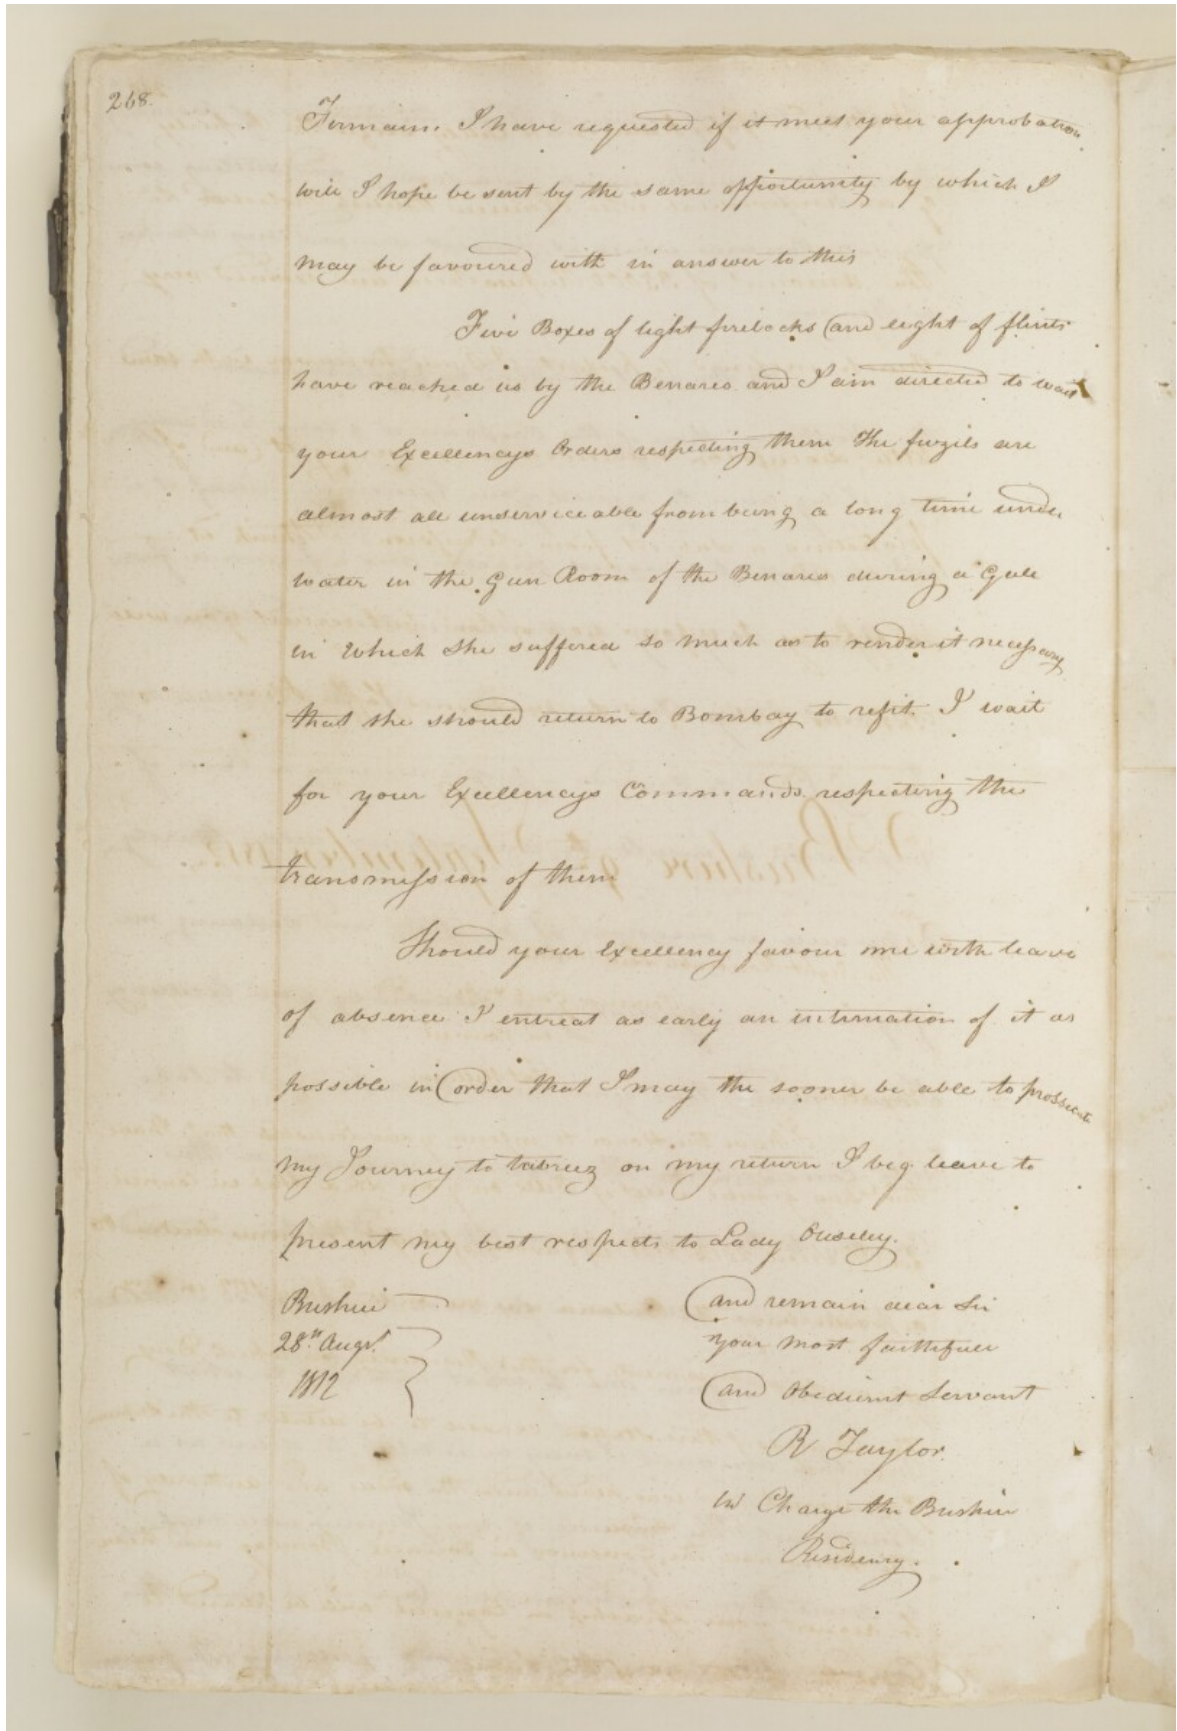 268.
Firmaun I have requested if it meet your approbation
will I hope be sent by the same opportunity by which I
may be favoured with in answer to this
Five Boxes of light firelocks and eight of flints
have reached us by the Benares and I am directed to wait
your Excellencys Orders respecting them The fuzils are
almost all unserviceable from being a long time under
water in the Gun Room of the Benares during a Gale
in which she suffered so much as to render it necessary
that she should return to Bombay to refit. I wait
for your Excellencys Commands respecting the
transmission of them
Should your Excellency favour me with leave
of absence I entreat as early an intimation of it as
possible in order that I may the sooner be able to prosecute
my Journey to tabreez on my return I beg leave to
present my best respects to Lady Ouseley.
Bushire
28th Augst.
1812
and remain dear Sir
your most faithfull
and Obedient Servant
R Taylor.
in Charge the Bushire
Residency.